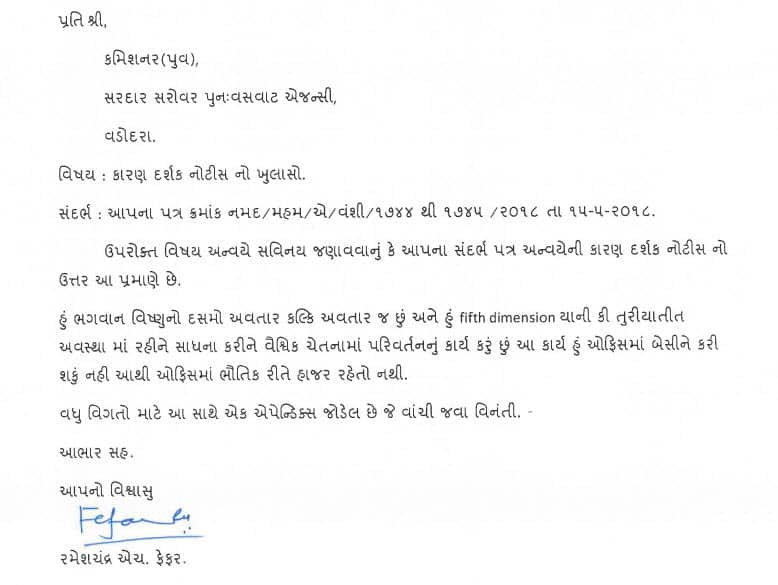 પ્રતિ શ્રી,
કમિશનર(પુવ),
સરદાર સરોવર પુનઃવસવાટ એજન્સી,
વડોદરા.
વિષય : કારણ દર્શક નોટીસ નો ખુલાસો.
સંદર્ભ : આપના પત્ર ક્રમાંક નમદ/મહમ/એ/વંશી/૧૭૪૪ થી ૧૭૪૫ /૨૦૧૮ તા ૧૫-૫-૨૦૧૮.
ઉપરોક્ત વિષય અન્વયે સવિનય જણાવવાનું કે આપના સંદર્ભ પત્ર અન્વયેની કારણ દર્શક નોટીસ નો
ઉત્તર આ પ્રમાણે છે.
હું ભગવાન વિષ્ણુનો દસમો અવતાર કલ્કિ અવતાર જ છું અને હું fifth dimension યાની કી તુરીયાતીત
અવસ્થા માં રહીને સાધના કરીને વૈશ્વિક ચેતનામાં પરિવર્તનનું કાર્ય કરું છું આ કાર્ય હું ઓફિસમાં બેસીને કરી
શકું નહી આથી ઓફિસમાં ભૌતિક રીતે હાજર રહેતો નથી.
વધુ વિગતો માટે આ સાથે એક એપેન્ડિક્સ જોડેલ છે જે વાંચી જવા વિનંતી. -
આભાર સહ.
આપનો વિશ્વાસુ
રમેશચંદ્ર એચ. ફેફર.